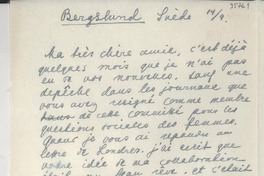 35761
Bergslund Suède 14/9.
Ma très chère amie, c'est déjà
quelques mois que je n'ai pas
eu de vos nouvelles, sauf une
dépêche dans les journaux que
vous avez resigné comme membre
de cette comité pour les
questions sociales des femmes.
Quand je vous ai répondu au
lettre de Londres, j'ai écrit que
votre idée de ma collaboration
était un beau rêve, et c'était